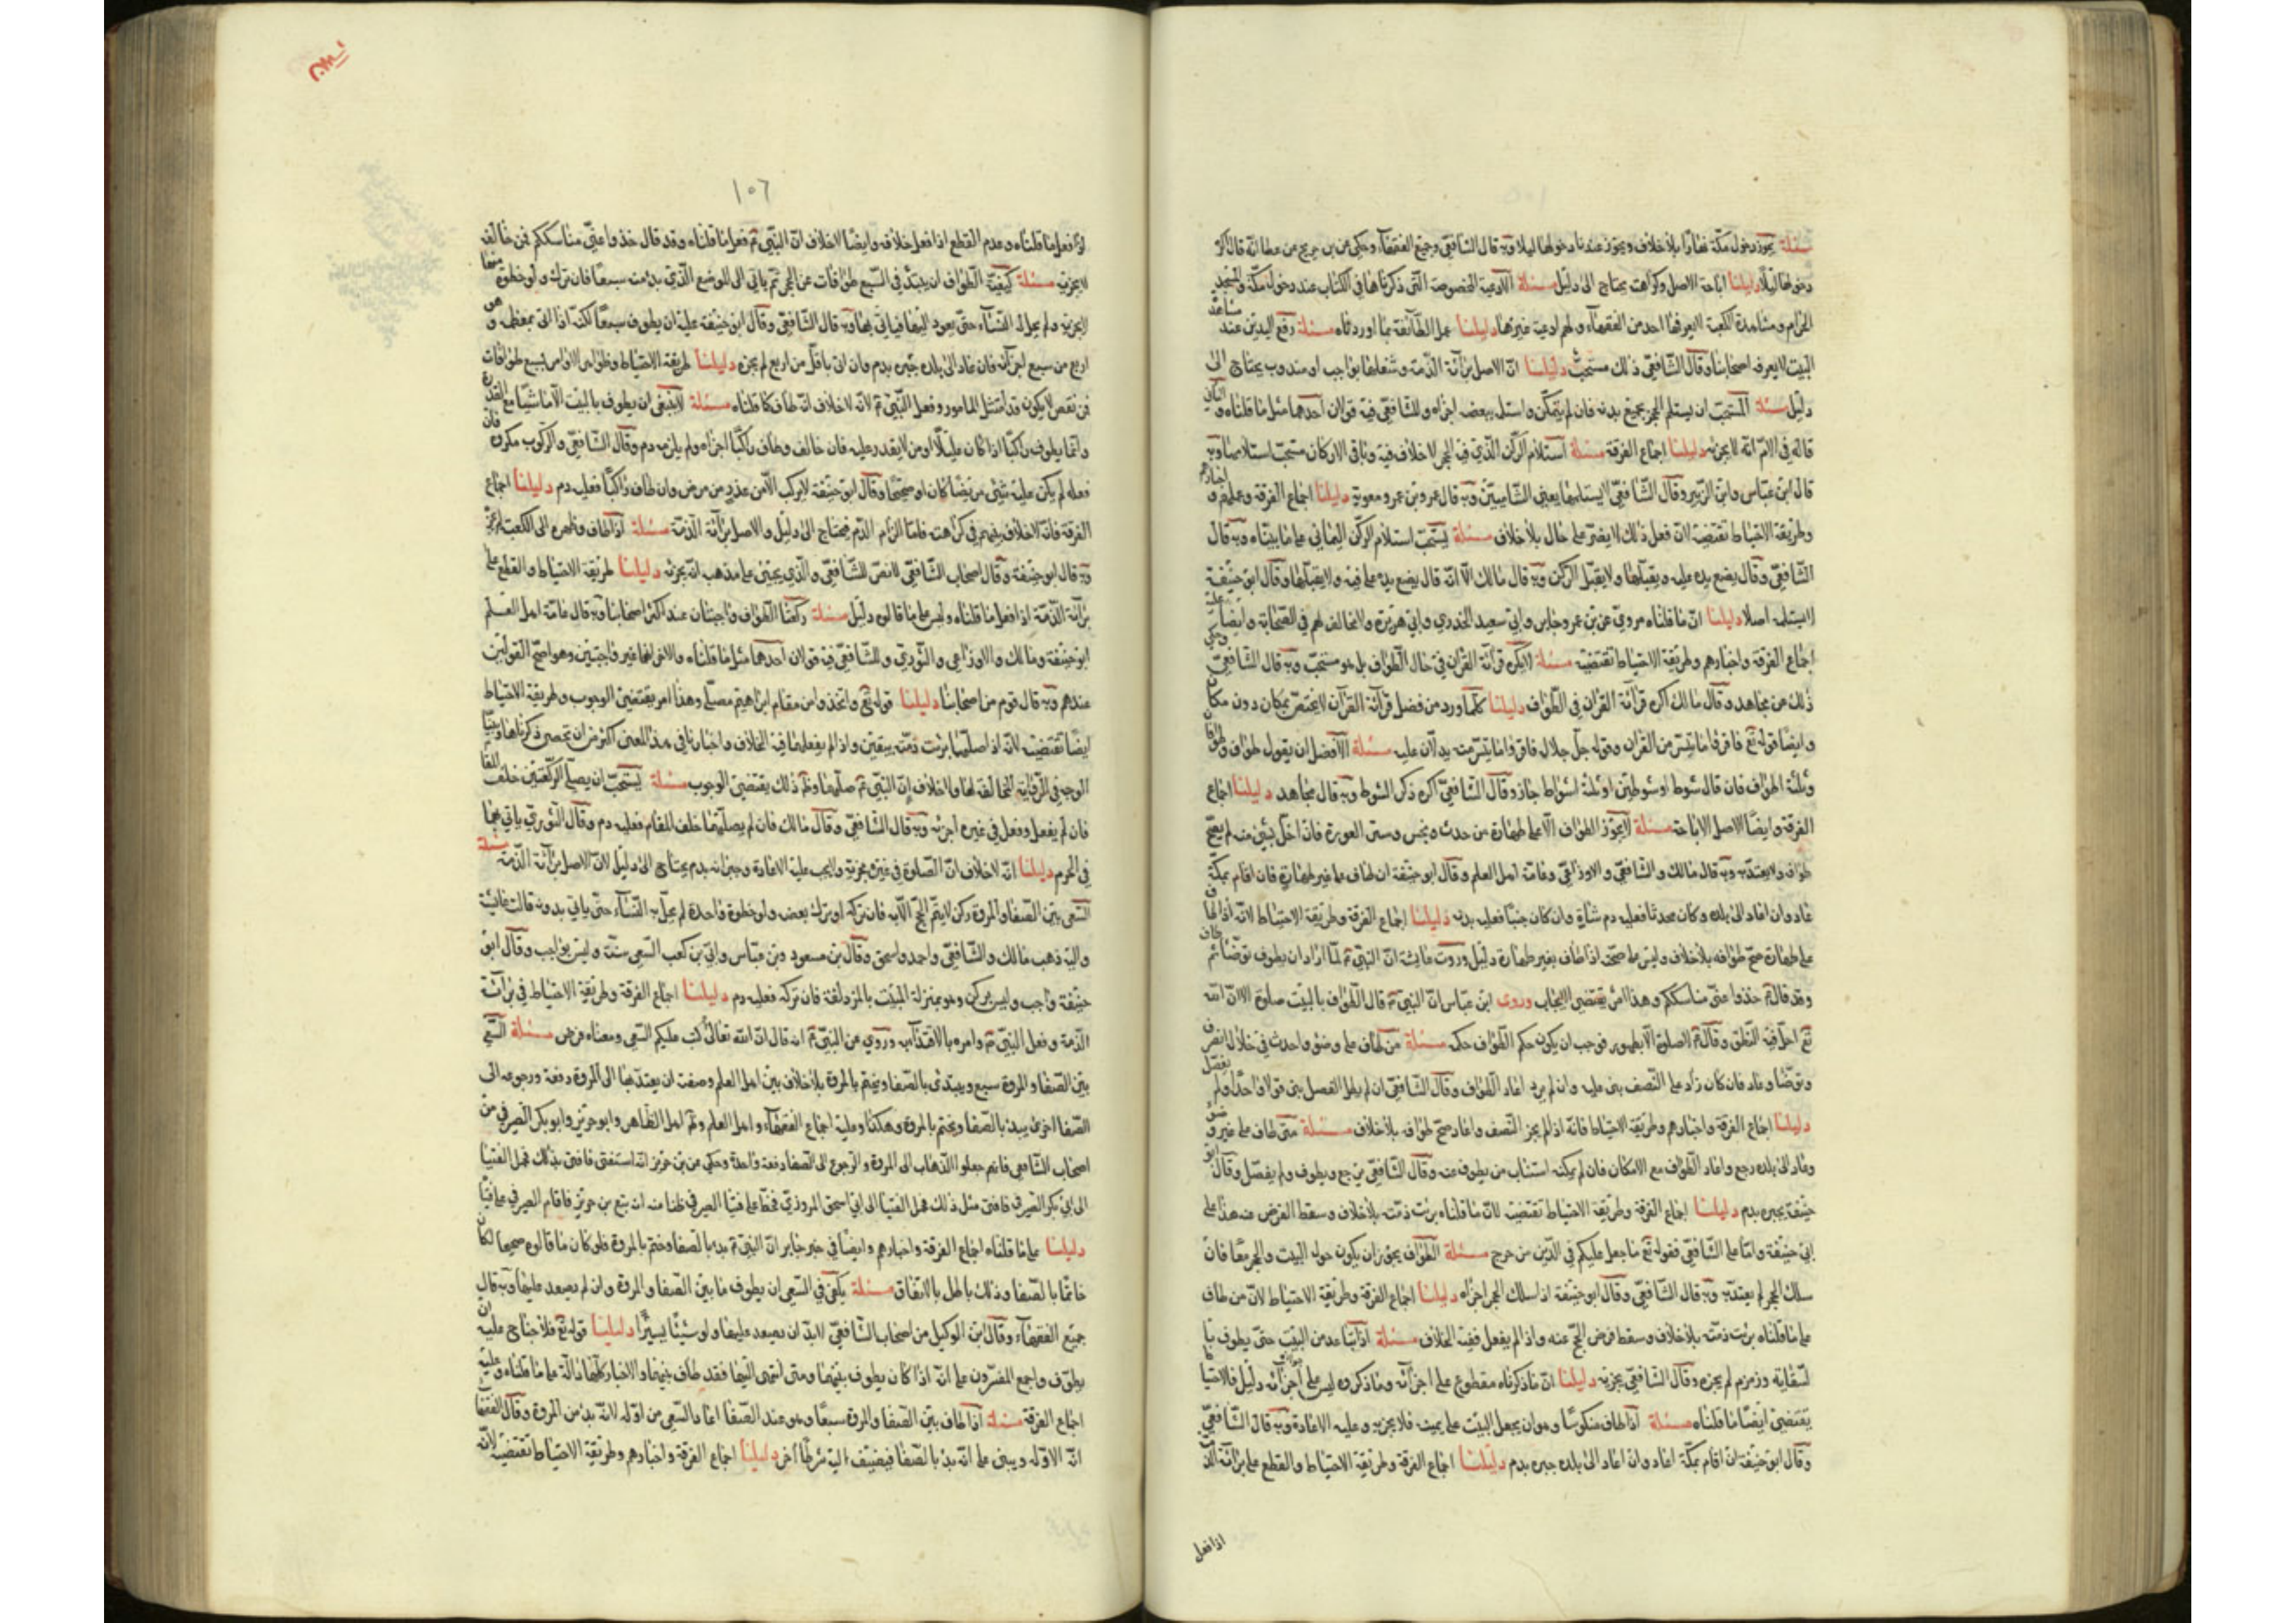 مسئلة يجوز دخول مكة نهارا بلا خلاف ويجوز عندنا دخولها ليلا وبه قال الشافعي وجميع الفقهاء وحكي عن بن جريج عن عطا انه قال اكره
دخولها ليلا دليلنا اباحة الاصل وكراهته يحتاج الى دليل مسئلة الادعية المخصوصة التي ذكرناها في الكتاب عند دخول مكة والمسجد
الحرام ومشاهدة الكعبة لا يعرفها احد من الفقهاء ولهم ادعية غيرها دليلنا عمل الطائفة بما اوردناه مسئلة رفع اليدين عند مشاهدة
البيت لا يعرفه اصحابنا وقال الشافعي ذلك مستحب دليلنا ان الاصل براءة الذمة وشغلها بواجب او مندوب يحتاج الى
دليل مسئلة المستحب ان يستلم الحجر بجميع بدنه فان لم يتمكن واستلم ببعضه اجزاه وللشافعي فيه قولان احدهما مثل ما قلناه والثاني
قاله في الام انه لا يجزيه دليلنا اجماع الفرقة مسئلة استلام الركن الذي فيه الحجر لا خلاف فيه وباقي الاركان مستحب استلامها وبه
قال ابن عباس وابن الزبير وقال الشافعي لا يستلمها يعني الشاميين وبه قال عمر وبن عمر ومعوية دليلنا اجماع الفرقة وعملهم واخبارهم
وطريقة الاحتياط تقتضيه لان فعل ذلك لا يضر على حال بلا خلاف مسئلة يستحب استلام الركن اليماني على ما بيناه وبه قال
الشافعي وقال يضع يده عليه ويقبلها ولا يقبل الركن وبه قال مالك الا انه قال يضع يده على فيه ولا يقبلها وقال ابو حنيفة
لا يستلمه اصلا دليلنا ان ما قلناه مروي عن بن عمر وجابر وابي سعيد الخدري وابي هريرة ولا مخالف لهم في الصحابة وايضا عليه
اجماع الفرقة واخبارهم وطريقة الاحتياط تقتضيه مسئلة لا يكره قرائة القران في حال الطواف بل هو مستحب وبه قال الشافعي وحكي
ذلك عن مجاهد وقال مالك اكره قرائة القران في الطواف دليلنا كلما ورد من فضل قرائة القرآن لا يختص بمكان دون مكان
وايضا قوله تع فاقرؤا ما تيسر من القران وقوله جل جلاله فاقرؤا ما تيسر منه يدلان عليه مسئلة الافضل ان يقول طواف وطوافان
وثلثة اطواف فان قال شوط او شوطين او ثلثة اشواط جاز وقال الشافعي اكره ذكر الشوط وبه قال مجاهد دليلنا اجماع
الفرقة وايضا الاصل الاباحة مسئلة لا يجوز الطواف الا على طهارة من حدث ونجس وستر العورة فان اخل بشيء منه لم يصح
طوافه ولا يعتد به وبه قال مالك والشافعي والاوزاعي وعامة اهل العلم وقال ابو حنيفة ان طاف على غير طهارة فان اقام بمكة
عاد وان عاد الى بلده وكان محدثا فعليه دم شاة وان كان جنبا فعليه بدنة دليلنا اجماع الفرقة وطريقة الاحتياط لانه اذا طاف
على طهارة صح طوافه بلا خلاف وليس على صحته اذا طاف بغير طهارة دليل وروت عايشة ان النبي ص لما اراد ان يطوف توضأ ثم طاف
وقد قال ص خذوا عني مناسككم وهذا امر يقتضي الايجاب وروى ابن عباس ان النبي ص قال الطواف بالبيت صلوة الا ان الله
تع احل فيه النطق وقال ص لا صلوة الا بطهور فوجب ان يكون حكم الطواف حكمه مسئلة من طاف على وضوء واحدث في خلاله انصرف
وتوضأ وعاد فان كان زاد على النصف بنى عليه وان لم يزد اعاد الطواف وقال الشافعي ان لم يطل الفصل بنى قولا واحدا ولم يفصل
دليلنا اجماع الفرقة واخبارهم وطريقة الاحتياط فانه اذا لم يجز النصف واعاد صح طوافه بلا خلاف مسئلة متى طاف على غير وضوء
وعاد الى بلده رجع واعاد الطواف مع الامكان فان لم يمكنه استناب من يطوف عنه وقال الشافعي يرجع ويطوف ولم يفصل وقال ابو
حنيفة يجبره بدم دليلنا اجماع الفرقة وطريقة الاحتياط تقتضيه لان ما قلناه برئت ذمته بلا خلاف وسقط الفرض عنه هذا على
ابي حنيفة واما على الشافعي فقوله تع ما جعل عليكم في الدين من حرج مسئلة الطواف يجوز ان يكون حول البيت والحجر معا فان
سلك الحجر لم يعتد به وبه قال الشافعي وقال ابو حنيفة اذا سلك الحجر اجزاه دليلنا اجماع الفرقة وطريقة الاحتياط لان من طاف
على ما قلناه برئت ذمته بلا خلاف وسقط فرض الحج عنه واذا لم يفعل ففيه الخلاف مسئلة اذا تباعد من البيت حتى يطوف با
لسقاية وزمزم لم يجزه وقال الشافعي يجزيه دليلنا ان ما ذكرناه مقطوع على اجزائه وما ذكروه ليس على اجزائه دليل فالاحتياط
يقتضي ايضا ما قلناه مسئلة اذا طاف منكوسا وهو ان يجعل البيت على يمينه فلا يجزيه وعليه الاعادة وبه قال الشافعي
وقال ابو حنيفة ان اقام بمكة اعاد وان عاد الى بلده جبره بدم دليلنا اجماع الفرقة وطريقة الاحتياط والقطع على برائة الذمة
اذا فعل
١٥٦
اذا فعل ما قلناه وعدم القطع اذا فعل خلافه وايضا لا خلاف ان النبي ص فعل ما قلناه وقد قال خذوا عني مناسككم فمن خالفه
لا يجزيه مسئلة كيفية الطواف ان يبتدي في السبع طوافات عن الحجر ثم ياتي الى الموضع الذي بدء منه سبعا فان ترك ولو خطوة منها
لم يجزيه ولم يحل له النساء حتى يعود اليها فياتي بها وبه قال الشافعي وقال ابو حنيفة عليه ان يطوف سبعا لكنه اذا اتى بمعظمه وهو
اربع من سبع اجزأه فان عاد الى بلده جبره بدم وان اتى باقل من اربع لم يجزه دليلنا طريقة الاحتياط وظواهر الاوامر بسبع طوافات
فمن نقص لا يكون قد امتثل المامور وفعل النبي ص لانه لا خلاف انه طاف كما قلناه مسئلة لا ينبغي ان يطوف بالبيت الا ماشيا مع القدرة
وانما يطوف راكبا اذا كان عليلا او من لا يقدر عليه فان خالف وطاف راكبا اجزاه ولم يلزمه دم وقال الشافعي والركوب مكروه فان
فعله لم يكن عليه شيء مريضا كان او صحيحا وقال ابو حنيفة لا يركب الا من عذر من مرض وان طاف راكبا فعليه دم دليلنا اجماع
الفرقة فانه لا خلاف بينهم في كراهته فاما الزام الدم فيحتاج الى دليل والاصل برائة الذمة مسئلة اذا طاف وظهره الى الكعبة لم يجزه
وبه قال ابو حنيفة وقال اصحاب الشافعي لا نص للشافعي والذي يجيئ على مذهبه انه يجزيه دليلنا طريقة الاحتياط والقطع على
برائة الذمة اذا فعل ما قلناه وليس على ما قالوه دليل مسئلة ركعتا الطواف واجبتان عند اكثر اصحابنا وبه قال عامة اهل العلم
ابو حنيفة ومالك والاوزاعي والثوري وللشافعي فيه قولان احدهما مثل ما قلناه والاخر انها غير واجبتين وهو اصح القولين
عندهم وبه قال قوم من اصحابنا دليلنا قوله تع واتخذوا من مقام ابراهيم مصلى وهذا امر يقتضي الوجوب وطريقة الاحتياط
ايضا تقتضيه لانه اذا صلاهما برئت ذمته بيقين واذا لم يفعلهما فيه الخلاف واخبارنا في هذا المعنى اكثر من ان تحصى ذكرناها وبينا
الوجه في الرواية المخالفة لها ولا خلاف ان النبي ص صلاهما وظاهر ذلك يقتضي الوجوب مسئلة يستحب ان يصلي الركعتين خلف المقام
فان لم يفعل وفعل في غيره اجزأه وبه قال الشافعي وقال مالك فان لم يصلهما خلف المقام فعليه دم وقال الثوري ياتي بهما
في الحرم دليلنا انه لا خلاف ان الصلوة في غيره مجزية ولا يجب عليه الاعادة وجبرانه بدم يحتاج الى دليل لان الاصل برائة الذمة مسئلة
السعي بين الصفا والمروة ركن لا يتم الحج الا به فان تركه او ترك بعضه ولو خطوة واحدة لم يحل له النساء حتى ياتي به وبه قالت عايشة
واليه ذهب مالك والشافعي واحمد واسحق وقال بن مسعود وبن عباس وابي بن كعب السعي سنة وليس بواجب وقال ابو
حنيفة واجب وليس بركن وهو بمنزلة المبيت بالمزدلفة فان تركه فعليه دم دليلنا اجماع الفرقة وطريقة الاحتياط في برائة
الذمة وفعل النبي ص وامره بالاقتداء به وروي عن النبي ص انه قال ان الله تعالى كتب عليكم السعي ومعناه فرض مسئلة السعي
بين الصفا والمروة سبع ويبتدئ بالصفا ويختم بالمروة بلا خلاف بين اهل العلم وصفته ان يعتد ذهابه الى المروة دفعة ورجوعه الى
الصفا اخرى يبدء بالصفا ويختم بالمروة وهكذا وعليه اجماع الفقهاء واهل العلم وقال اهل الظاهر وابو جرير وابو بكر الصيرفي من
اصحاب الشافعي فانهم جعلوا الذهاب الى المروة والرجوع الى الصفا دفعة واحدة وحكي عن بن جرير انه استفتى فافتى بذلك فحمل الفتيا
الى ابي بكر الصيرفي فافتى مثل ذلك فحمل الفتيا الى ابي اسحق المروزي فخطأ على فتيا الصيرفي ظنا منه انه تبع بن جرير فاقام الصيرفي على فتياه
دليلنا على ما قلناه اجماع الفرقة واخبارهم وايضا في خبر جابر ان النبي ص بدء بالصفا وختم بالمروة فلو كان ما قالوه صحيحا لكان
خاتما بالصفا وذلك باطل بالاتفاق مسئلة يكفي في السعي ان يطوف ما بين الصفا والمروة وان لم يصعد عليهما وبه قال
جميع الفقهاء وقال ابن الوكيل من اصحاب الشافعي لابد ان يصعد عليهما ولو شيئا يسيرا دليلنا قوله تع فلا جناح عليه ان
يطوف واجمع المفسرون على انه اذا كان يطوف بينهما ومتى انتهى اليهما فقد طاف بينهما والاخبار كلها دالة على ما قلناه وعليه
اجماع الفرقة مسئلة اذا طاف بين الصفا والمروة سبعا وهو عند الصفا اعاد السعي من اوله لانه بدء من المروة وقال الفقهاء
انه الاوله ويبنى على انه بدء بالصفا فيضيف اليه شوطا آخر دليلنا اجماع الفرقة واخبارهم وطريقة الاحتياط تقتضيه لانه